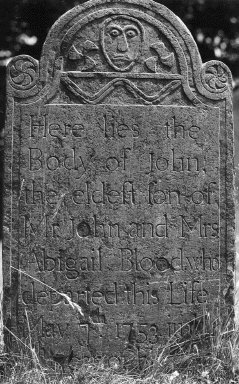 Here lies the
Body of John,
the eldeſt ſon of
Mr. John and Mrs
Abigail Blood, who
departed this Life
May 7th 1753